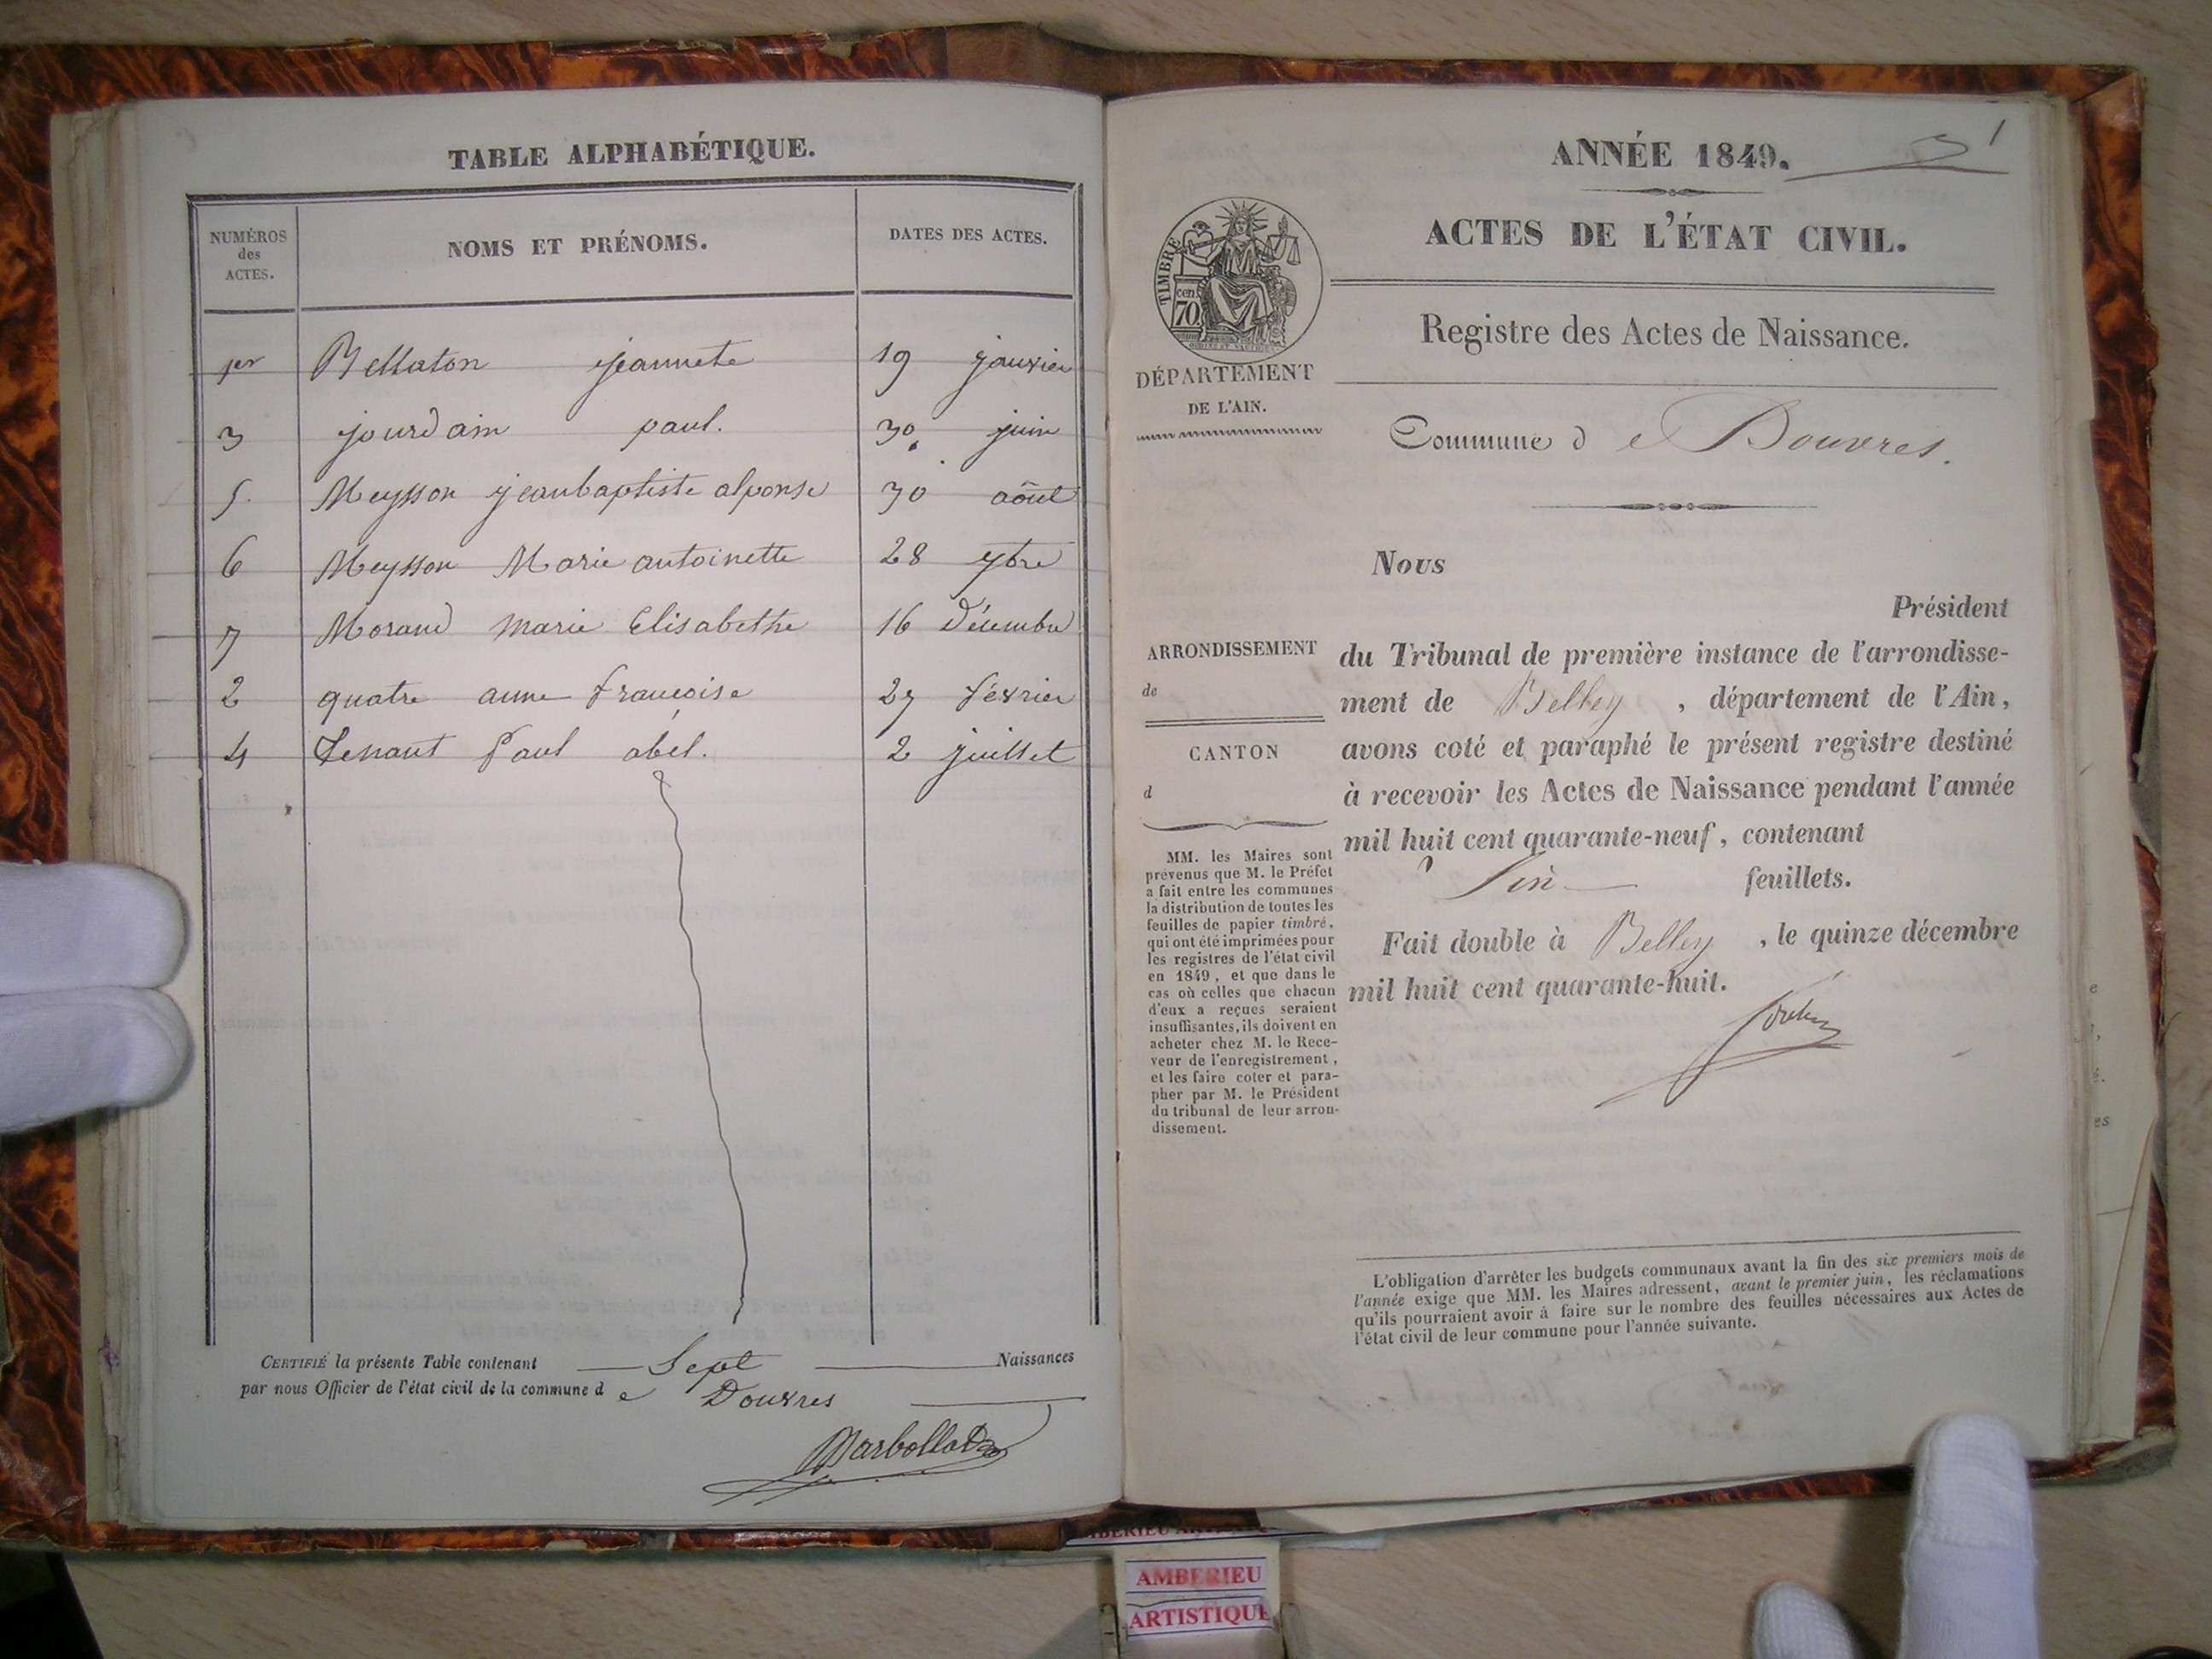 TABLE ALPHABÉTIQUE.
NUMÉROS
des
ACTES.
NOMS ET PRÉNOMS.
DATES DES ACTES.
1er Bellaton jeannete 19 janvier
3 jourdain paul. 30 juin
5. Meysson jeanbaptiste alponse 30 aôut
6 Meysson Marie antoinette 28 9bre
7 Morand Marie Elisabethe 16 Décembre
2 quatre anne françoise 27 février
4 Tenant Paul abel. 2 juillet
CERTIFIÉ la présente Table contenant Sept Naissances
par nous Officier de l'état civil de la commune d e Douvres
Barbollat
ANNÉE 1849.
1
ACTES DE L'ÉTAT CIVIL.
Registre des Actes de Naissance.
TIMBRE
70
cen.
DÉPARTEMENT
DE L'AIN.
Commune d e Douvres.
Nous
Président
du Tribunal de première instance de l'arrondisse-
ment de Belley , département de l'Ain,
avons coté et paraphé le présent registre destiné
à recevoir les Actes de Naissance pendant l'année
mil huit cent quarante-neuf, contenant
feuillets.
Fait double à Belley , le quinze décembre
mil huit cent quarante-huit.
ARRONDISSEMENT
de
CANTON
d
MM. les Maires sont
prévenus que M. le Préfet
a fait entre les communes
la distribution de toutes les
feuilles de papier timbré,
qui ont été imprimées pour
les registres de l'état civil
en 1849, et que dans le
cas où celles que chacun
d'eux a reçues seraient
insuffisantes, ils doivent en
acheter chez M. le Rece-
veur de l'enregistrement,
et les faire coter et para-
pher par M. le Président
du tribunal de leur arron-
dissement.
L'obligation d'arrêter les budgets communaux avant la fin des six premiers mois de
l'année exige que MM. les Maires adressent, avant le premier juin, les réclamations
qu'ils pourraient avoir à faire sur le nombre des feuilles nécessaires aux Actes de
l'état civil de leur commune pour l'année suivante.
AMBERIEU
ARTISTIQUE